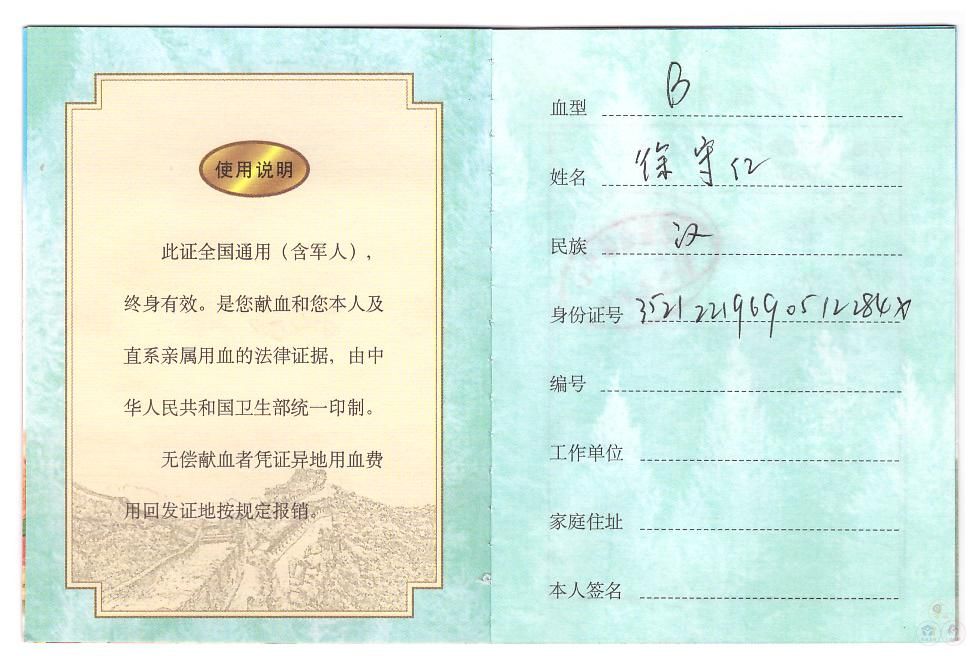 使用说明
此证全国通用（含军人），
终身有效。是您献血和您本人及
直系亲属用血的法律证据，由中
华人民共和国卫生部统一印制。
无偿献血者凭证异地用血费
用回发证地按规定报销。
血型 B
姓名 徐守仁
民族 汉
身份证号 35212219690512284X
编号
工作单位
家庭住址
本人签名